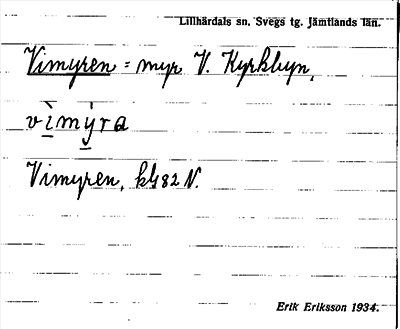 Lillhärdals sn. Svegs tg. Jämtlands län.
Vimyren = myr V. Kyrkbyn.
vìmýra
Vimyren, 82 N.
Erik Eriksson 1934.